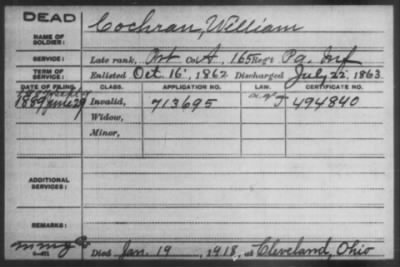 DEAD
Cochran, William
NAME OF SOLDIER:
SERVICE: Late rank, Pvt Co. A, 165 Reg't Pa. Inf
TERM OF SERVICE: Enlisted Oct 16, 1862 Discharged July 22, 1863
DATE OF FILING. CLASS. APPLICATION NO. LAW. CERTIFICATE NO.
1889 June 29 Invalid, 713695 J 494840
Widow,
Minor,
ADDITIONAL SERVICES:
REMARKS:
Died Jan. 19, 1918, at Cleveland, Ohio